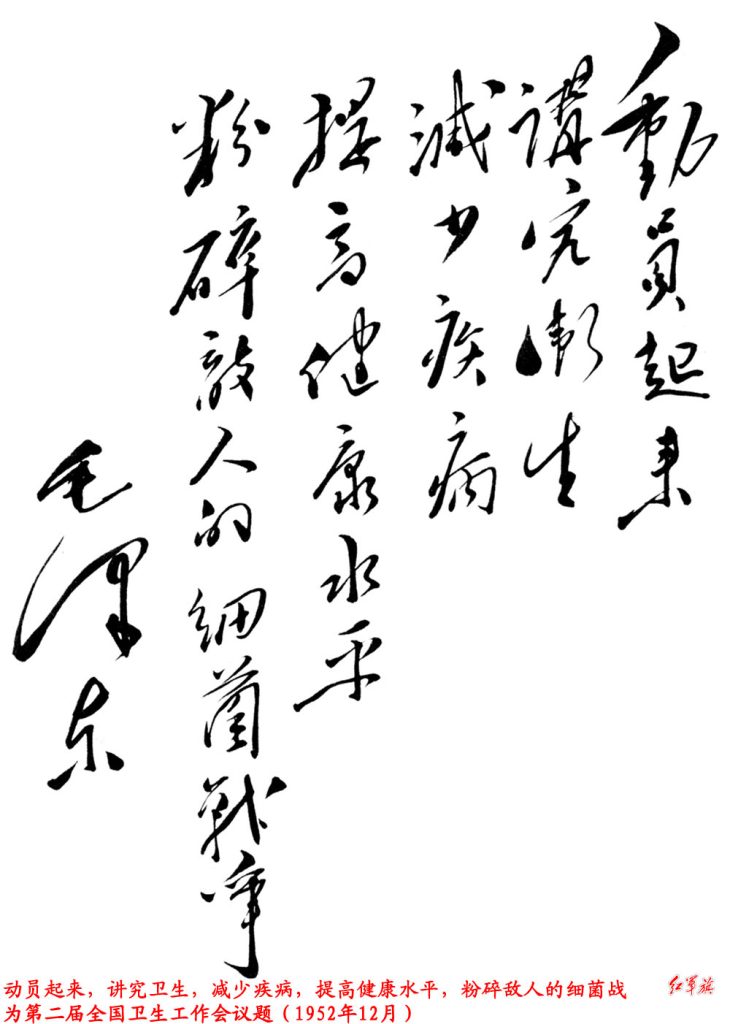 動員起来
講究衞生
減少疾病
提高健康水平
粉碎敵人的細菌戰争
毛澤东
动员起来，讲究卫生，减少疾病，提高健康水平，粉碎敌人的细菌战
为第二届全国卫生工作会议题（1952年12月）
红军旗